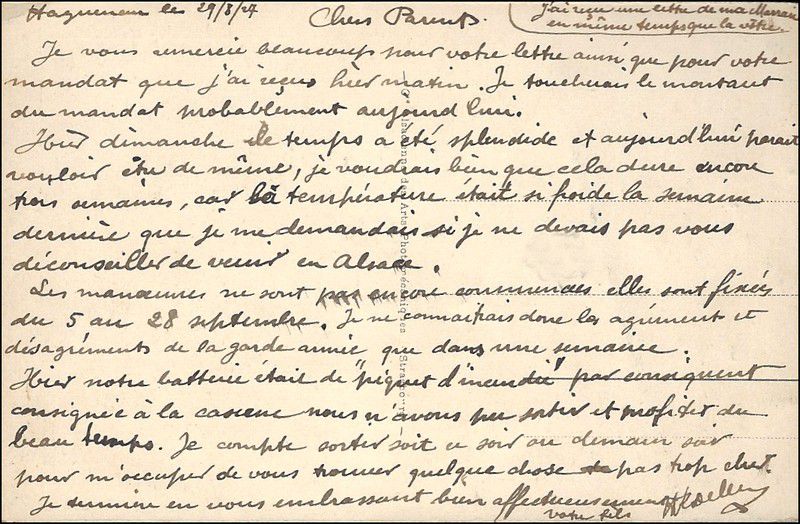 Haguenau le 29/8/27
Chers Parents.
J'ai reçu une lettre de ma Marraine
en même temps que la vôtre.
Je vous remercie beaucoup pour votre lettre ainsi que pour votre
mandat que j'ai reçus hier matin. Je toucherais le montant
du mandat probablement aujourd'hui.
Hier dimanche le temps a été splendide et aujourd'hui parait
vouloir être de même, je voudrais bien que cela dure encore
trois semaines, car la température était si froide la semaine
dernière que je me demandais si je ne devais pas vous
déconseiller de venir en Alsace.
Les manœuvres ne sont pas encore commencées elles sont fixées
du 5 au 28 septembre. Je ne connaitrais donc les agrément et
désagréments de la garde armée que dans une semaine.
Hier notre batterie était de "piquet d'incendie" par conséquent
consignée à la caserne nous n'avons pu sortir et profiter du
beau temps. Je compte sortir soit ce soir ou demain soir
pour m'occuper de vous trouver quelque chose pas trop cher.
Je termine en vous embrassant bien affectueusement
votre fils